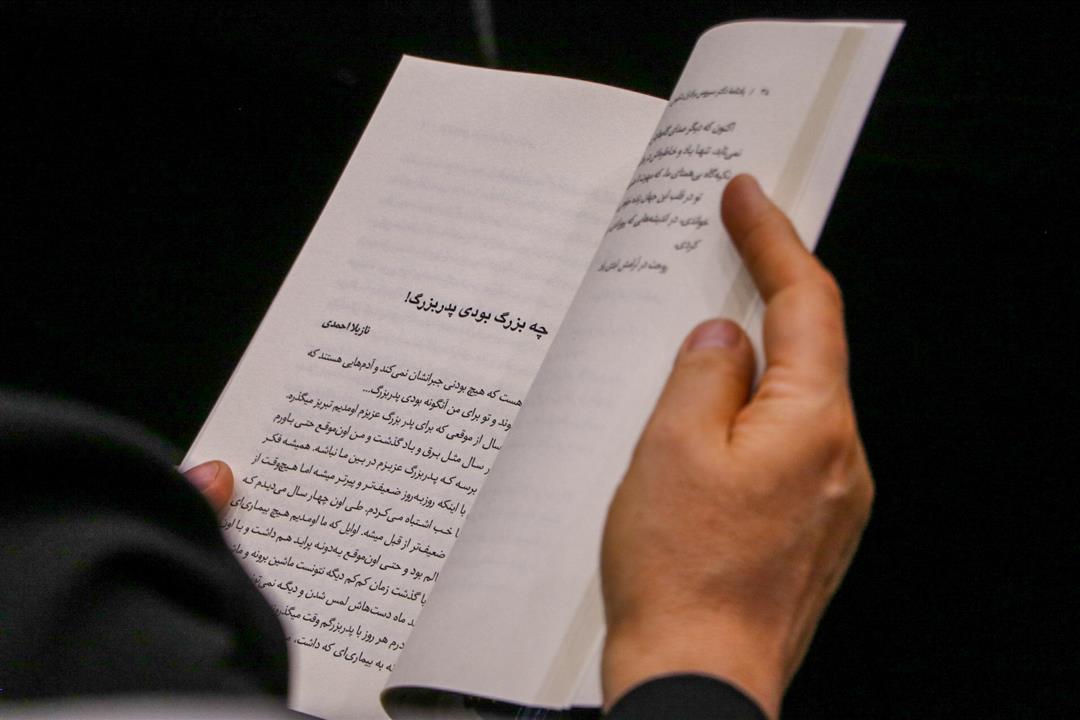 اکنون که دیگر صدای
نمی‌تابد، تنها یاد و خاطراتش
تکیه‌گاه بی‌همتای ما، که
تو در قلب این جهان زنده
خواندی، در اندیشه‌هایی که
کردی.
روحت در آرامش ابدی باد
چه بزرگ بودی پدربزرگ!
نازیلا احمدی
هست که هیچ بودنی جبرانشان نمی‌کند و آدم‌هایی هستند که
وند و تو برای من آنگونه بودی پدربزرگ...
سال از موقعی که برای پدر بزرگ عزیزم اومدیم تبریز میگذره.
ر سال مثل برق و باد گذشت و من اون‌موقع حتی باورم
برسه که پدربزرگ عزیزم در بین ما نباشه. همیشه فکر
با اینکه روزبه‌روز ضعیف‌تر و پیرتر میشه اما هیچ‌وقت از
ا خب اشتباه می‌کردم. طی اون چهار سال می‌دیدم که
ضعیف‌تر از قبل میشه. اوایل که ما اومدیم هیچ بیماری‌ای
الم بود و حتی اون‌موقع یه‌دونه پراید هم داشت و با اون
با گذشت زمان کم‌کم دیگه نتونست ماشین برونه و
د ماه دست‌هاش لمس شدن و دیگه
درم هر روز با پدربزرگم وقت
نه به بیماری‌ای که داشت،